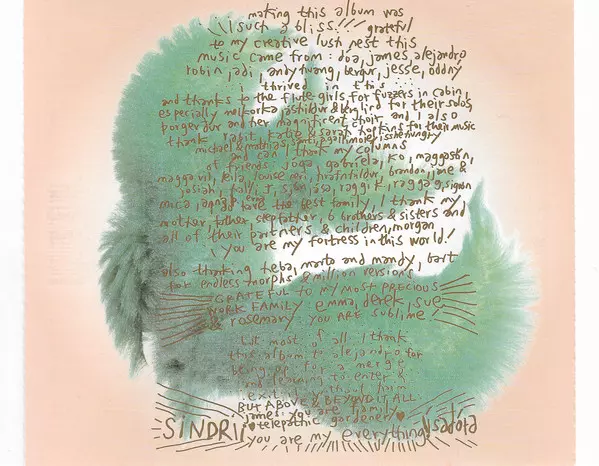 making this album was
such a bliss... grateful
to my creative lust nest this
music came from: doa, james, alejandro
robin, jadi, andy huang, bergur, jesse, oddny
i thrived in this
and thanks to the flute-girls for fuzzers in cabin,
especially melkorka, ashildur & berglind for their solos,
þorgerdur and her magnificent choir and i also
thank rabit, katie & sarah hopkins for their music
michael & mathias, bart, a.gallimore,
and can i thank my columns
of friends: joga, gabriela, ko, maggastin,
magga vil, leila, louise neri, brandon, jane &
josiah, palli, r, sjon, jaso, raggi k, ragga g, sigron
mica, i have the best family, i thank my
mother, father, stepfather, 6 brothers & sisters and
all of their partners & children, morgan
you are my fortress in this world!
also thanking heba, marta and mandy, bart
for endless morphs & million versions
GRATEFUL TO MY MOST PRECIOUS
WORK FAMILY: emma, derek, sue
& rosemary you ARE sublime
but most of all i thank
this album to alejandro for
being up for a merge
and learning to enter &
exit without harm
BUT ABOVE & BEYOND IT ALL:
james: you are family
SINDRI telepathic gardener ísadóra
you are my everything